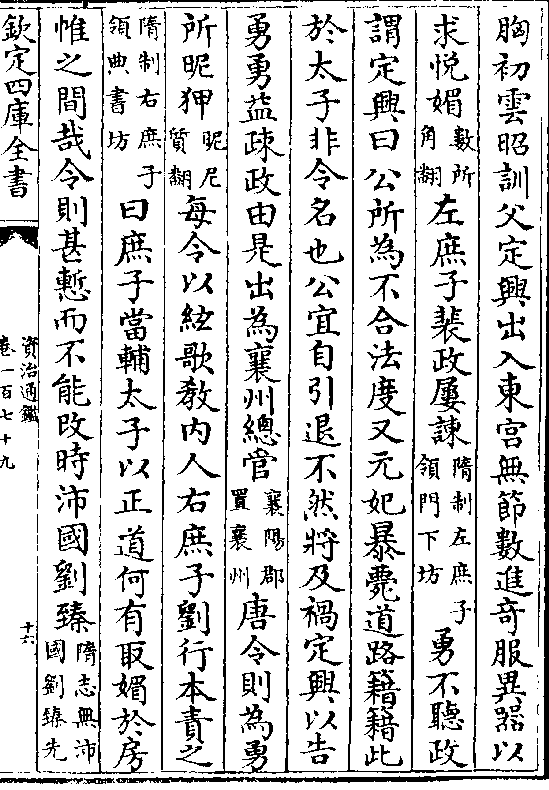 胸初雲昭訓父定興出入東宮無節數進奇服異器以
求悦媚數所角翻左庶子裴政屢諫隋制左庶子領門下坊勇不聽政
謂定興曰公所為不合法度又元妃暴薨道路籍籍此
於太子非令名也公宜自引退不然將及禍定興以告
勇勇益疎政由是出為襄州總管襄陽郡置襄州唐令則為勇
所昵狎昵尼質翻每令以絃歌教内人右庶子劉行本責之
隋制右庶子領典書坊曰庶子當輔太子以正道何有取媚於房
帷之間哉令則甚慙而不能改時沛國劉臻隋志無沛國劉臻先
欽定四庫全書
資治通鑑
卷一百七十九
十六